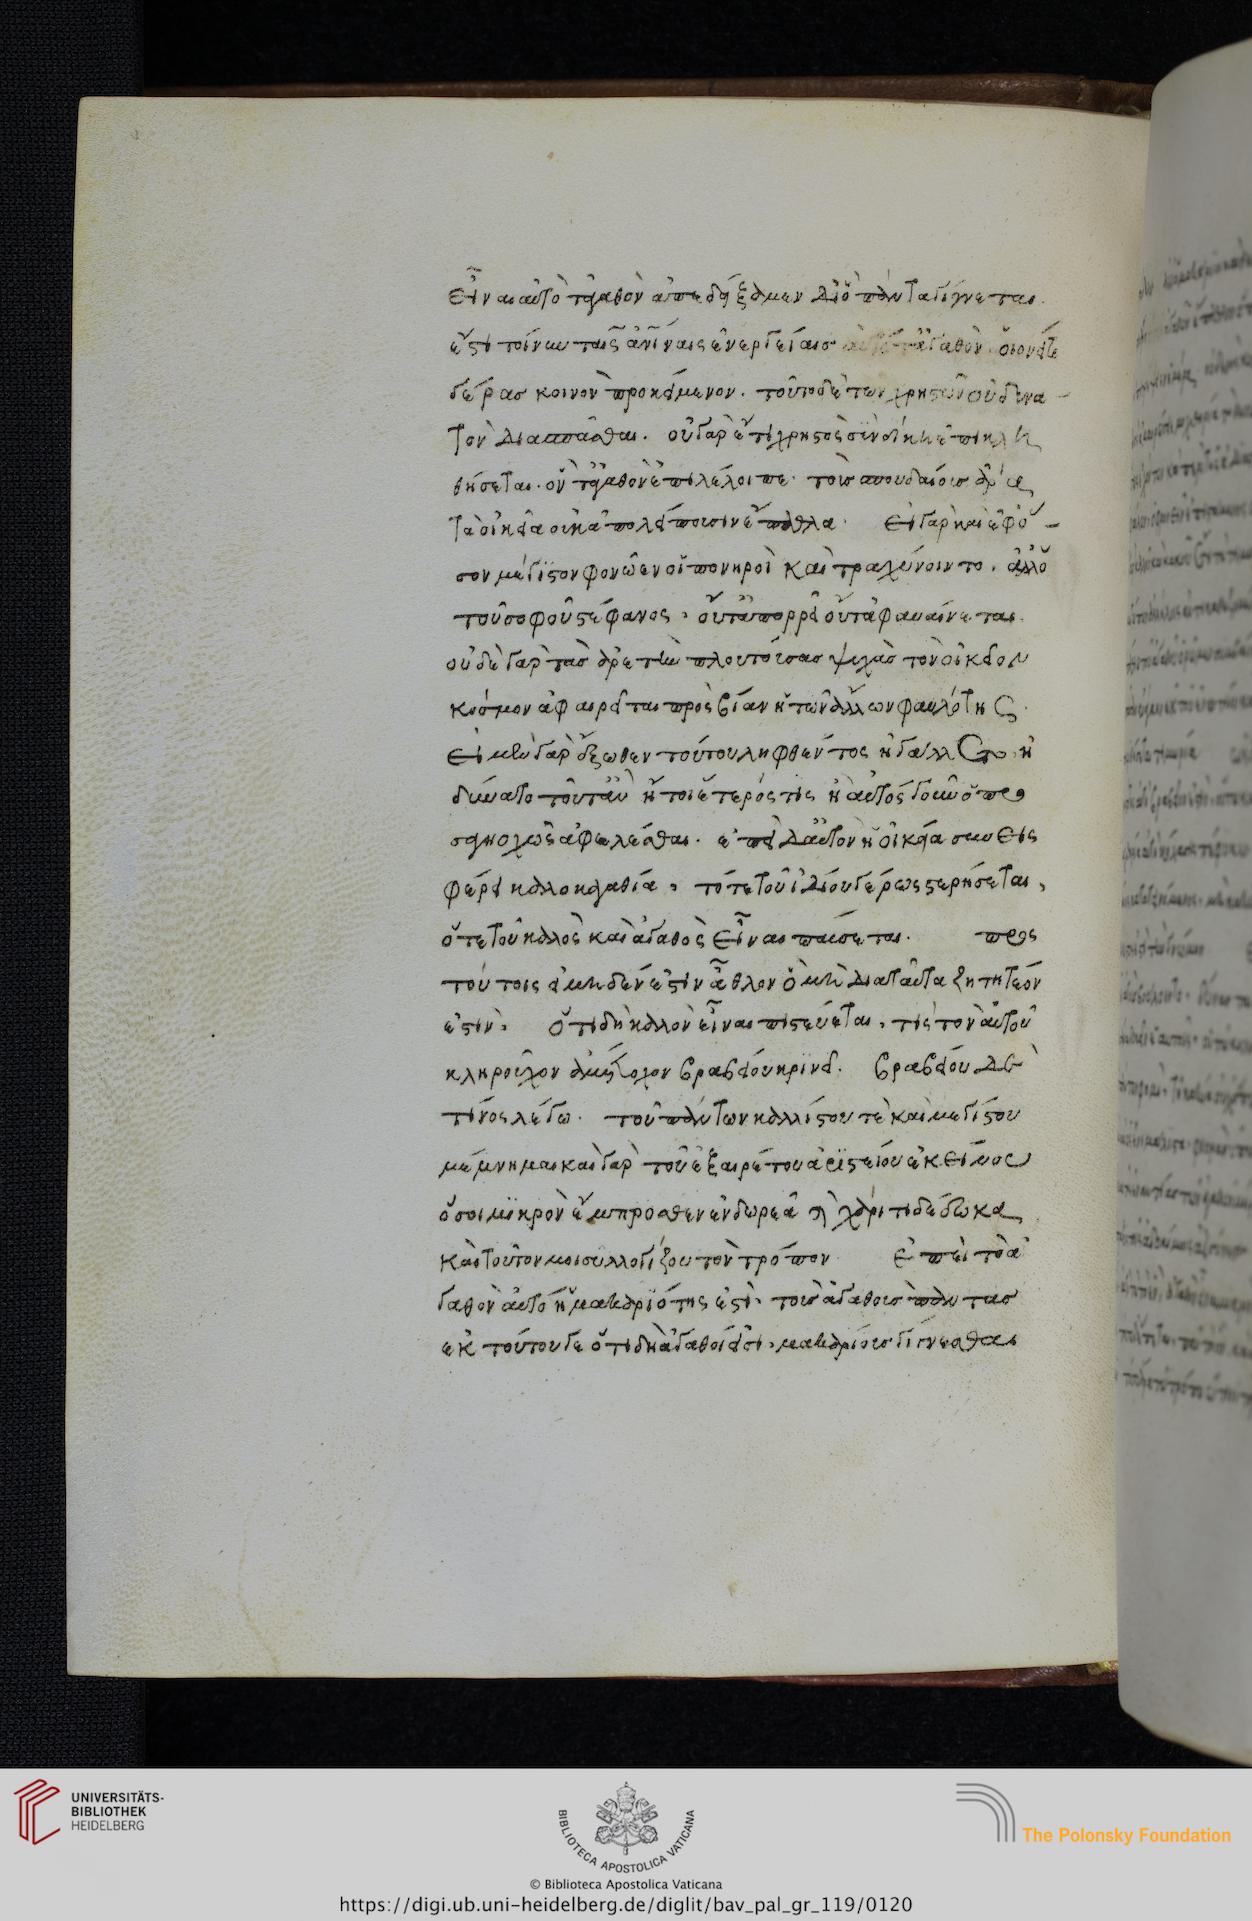 εἶναι αὐτὸ τἀγαθὸν ἀπεδείξαμεν δι' ὃ πάντα γίγνεται.
ἔστι τοίνυν ταῖς ἀν̅ίναις ἐνεργείαις αὐτὸ τἀγαθὸν οἱονεί τε
γέρας κοινὸν προκείμενον. τοῦτο δὲ τῶν χρηστῶν οὐ δυνα
τὸν διασπᾶσθαι. οὐ γὰρ ἔτι χρηστὸς ἐπικλη
θήσεται. ὃν τἀγαθὸν ἐπιλέλοιπε. τοῖς σπουδαίοις ἄρα
τὰ οἰκεῖα οὐκ ἀπολείπουσιν ἔπαθλα. εἰ γὰρ καὶ ἐφ' ὅ
σον μέγιστον φονῶεν οἱ πονηροὶ καὶ τραχύνοιντο. ἀλλ' ὁ
τοῦ σοφοῦ στέφανος, οὔτ' ἀπορρεῖ οὔτ' ἀφαυαίνεται.
οὐδὲ γὰρ τὰς ἀρετὴν πλουτούσας ψυχὰς τὸν οἰκεῖον
κόσμον ἀφαιρεῖται πρὸς βίαν ἡ τῶν ἄλλων φαυλότης.
εἰ μὲν γὰρ ἔξωθεν τούτου ληφθέντος ἠγάλλετο, ἠ
δύνατο τοῦτ' ἂν ἤτοι ἕτερός τις ἢ αὐτός γοῦν ὁ
ἀφελέσθαι. ἐπεὶ δ' αὐτὸν ἡ οἰκεία συνεις
φέρει καλοκαγαθία, τότε τοῦ ἰδίου γέρως στερήσεται,
ὅτε τοῦ καλὸς καὶ ἀγαθὸς εἶναι παύσεται. πρὸς
τούτοις εἰ μηδέν ἐστιν ἆθλον ὃ μὴ διὰ ταῦτα ζητητέον
ἐστὶν, ὅτι δὴ καλὸν εἶναι πιστεύεται, τίς τὸν αὐτοῦ
κληροῦχον ἀμέτοχον βραβείου κρίνει. βραβείου δὲ
τίνος λέγω. τοῦ πάντων καλλίστου τὲ καὶ μεγίστου
μέμνημαι καὶ γὰρ τοῦ ἐξαιρέτου ἀριστείου ἐκείνου
ὅ σοι μικρὸν ἔμπροσθεν ἐν δωρεᾶς χάριτι δέδωκα
καὶ τοῦτον μοι συλλογίζου τὸν τρόπον. ἐπεὶ τὸ ἀ
γαθὸν αὐτό ἡ μακαριότης ἐστὶ, τοὺς ἀγαθοὺς πάντας
ἐκ τούτου γε ὅτι δὴ ἀγαθοί εἰσι, μακαρίους γίγνεσθαι
UNIVERSITÄTS-
BIBLIOTHEK
HEIDELBERG
BIBLIOTECA APOSTOLICA VATICANA
The Polonsky Foundation
© Biblioteca Apostolica Vaticana
https://digi.ub.uni-heidelberg.de/diglit/bav_pal_gr_119/0120